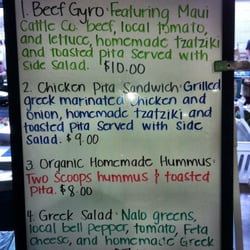 1. Beef Gyro: Featuring Maui
Cattle Co. beef, local tomato,
and lettuce, homemade tzatziki
and toasted Pita Served with
Side Salad. $10.00
2. Chicken Pita Sandwich: Grilled
greek marinated chicken and
onion, homemade tzatziki and
toasted pita Served with Side
Salad. $9.00
3. Organic Homemade Hummus:
Two Scoops hummus & toasted
Pita. $8.00
4. Greek Salad: Nalo greens,
local bell pepper, tomato, Feta
cheese, and homemade Greek